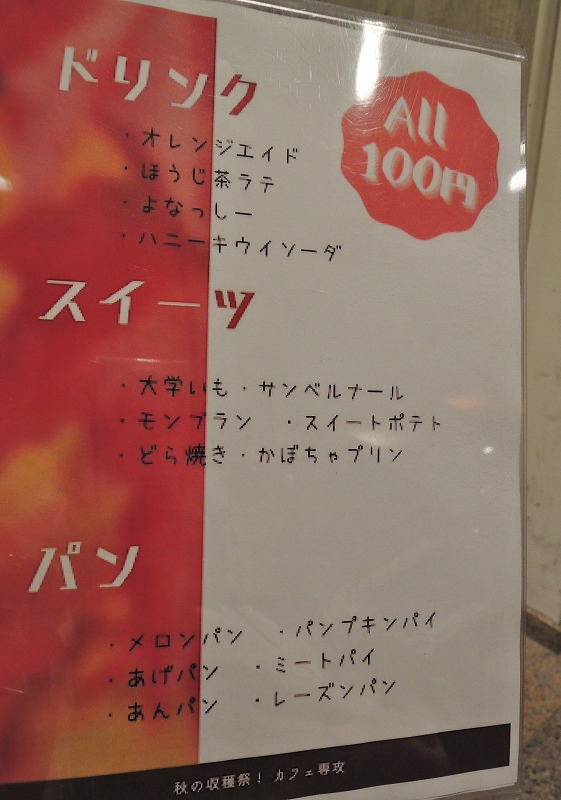 ドリンク
All
100円
・オレンジエイド
・ほうじ茶ラテ
・よなっしー
・ハニーキウイソーダ
スイーツ
・大学いも・サンベルナール
・モンブラン ・スイートポテト
・どら焼き・かぼちゃプリン
パン
・メロンパン ・パンプキンパイ
・あげパン ・ミートパイ
・あんパン ・レーズンパン
秋の収穫祭！カフェ専攻